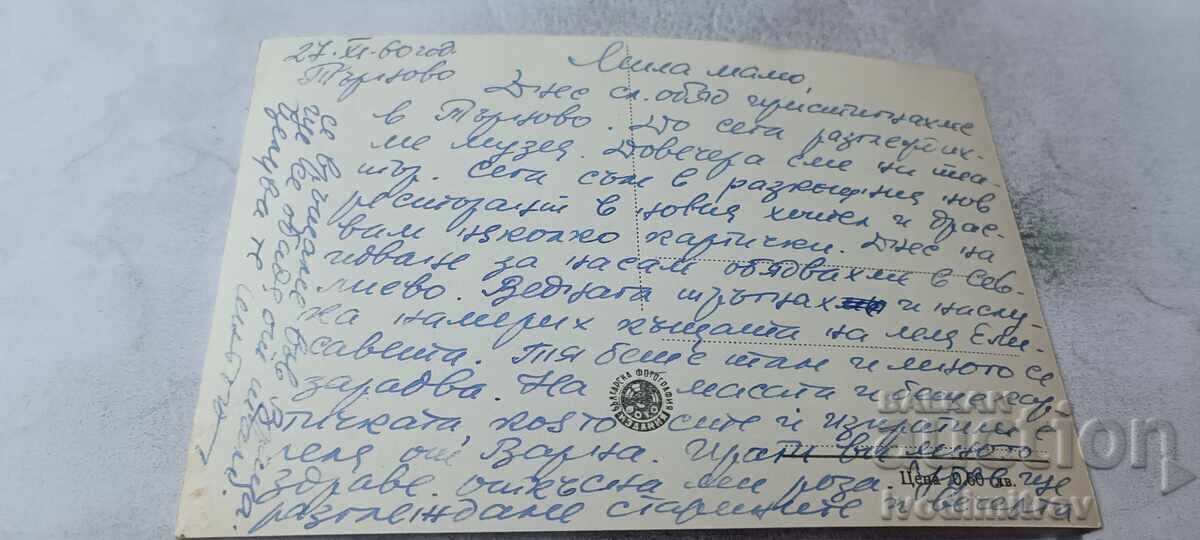 27.XI.60 год.
Търново
Мила мамо,
Днес сл. обяд пристигнахме
в Търново. До сега разгледах-
ме музея. Довечера сме на теа-
тър. Сега съм в разкошния нов
ресторант в новия хотел и драс-
вам няколко картички. Днес на
идване за насам обядвахме в Сев-
лиево. Веднага тръгнах и наслу-
ка намерих къщата на леля Ели-
савета. Тя беше там и много се
зарадва. На масата и беше кар-
тичката, която сте и изпратили с
леля от Варна. Прати ви много
здраве. откъсна ми роза. Утре ще
разглеждаме старините и вечерта
се връщаме във Враца
ще се обадя от Враца.
Целува те
БЪЛГАРСКА ФОТОГРАФИЯ
ФОТО
ИЗДАНИЕ
Цена 0,60 лв.
BALKAN
auction
ivodimitrov